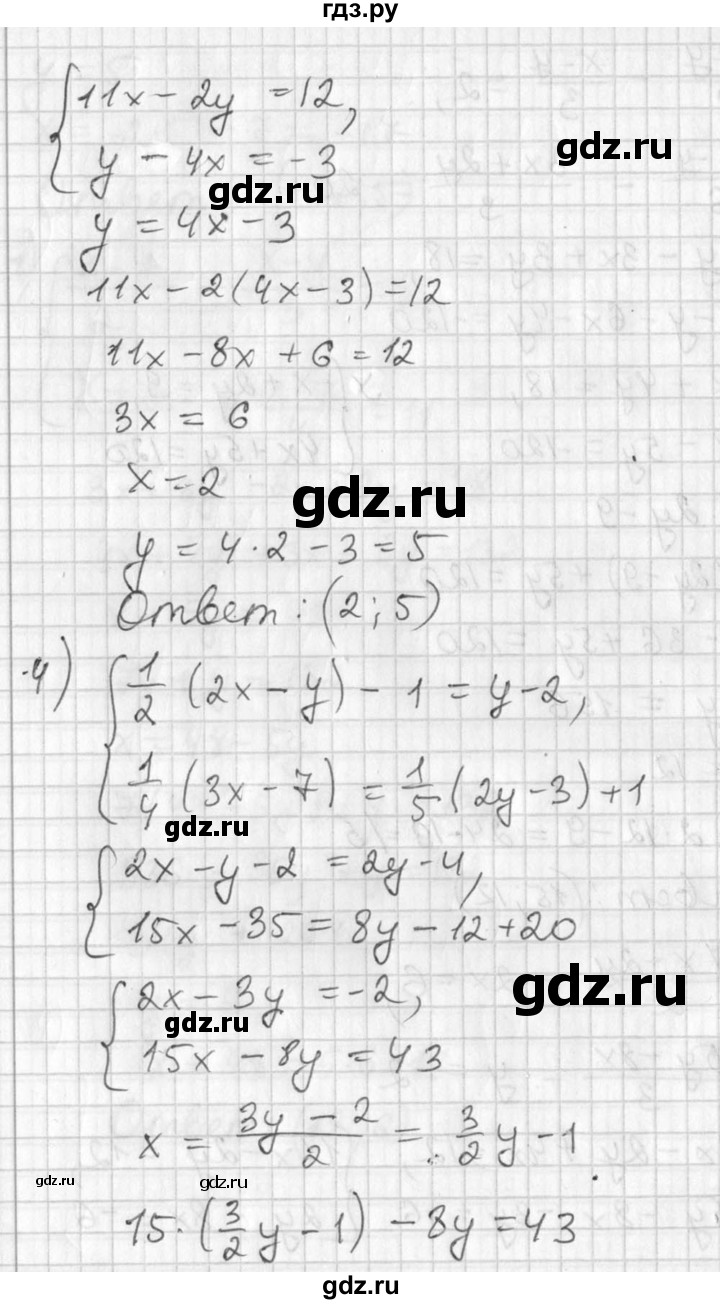 гдз.ру
{11x - 2y = 12,
y - 4x = -3
gdz.ru
gdz.ru
y = 4x - 3
11x - 2(4x - 3) = 12
11x - 8x + 6 = 12
3x = 6
x = 2
gdz.ru
y = 4·2 - 3 = 5
Ответ: (2; 5)
4) {1/2 (2x - y) - 1 = y - 2,
1/4 (3x - 7) = 1/5 (2y - 3) + 1
gdz.ru
{2x - y - 2 = 2y - 4,
15x - 35 = 8y - 12 + 20
gdz.ru
{2x - 3y = -2,
gdz.ru
15x - 8y = 43
x = (3y - 2)/2 = 3/2 y - 1
gdz.ru
gdz.ru
15·(3/2 y - 1) - 8y = 43
gdz.ru